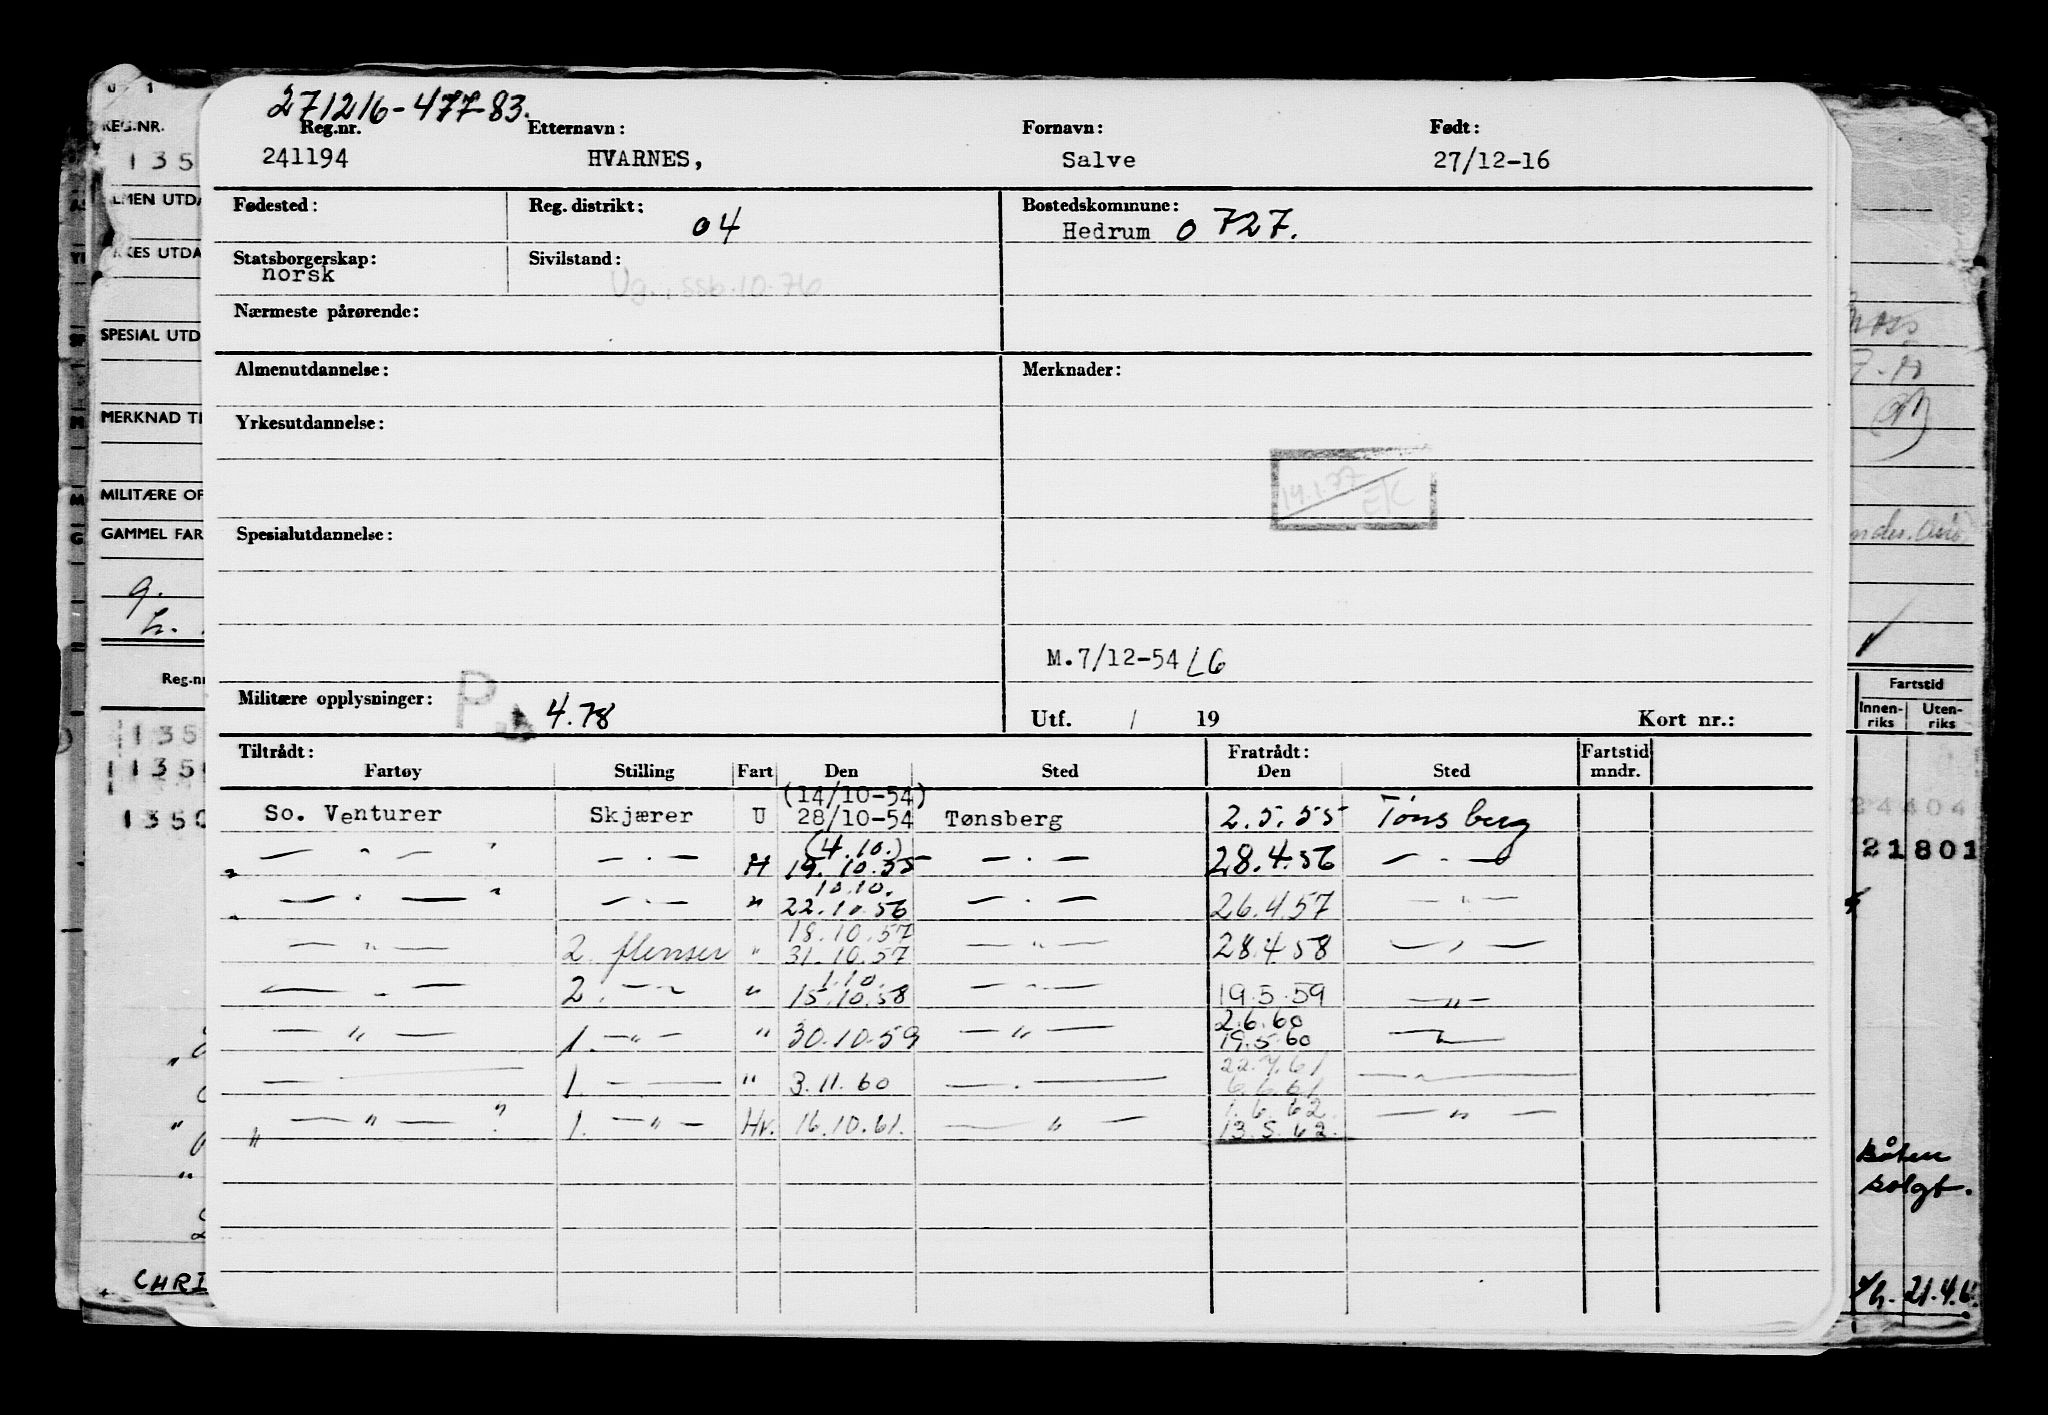 271216-477-83.
Reg.nr. Etternavn: Fornavn: Født:
241194 HVARNES, Salve 27/12-16
Fødested: Reg. distrikt: 04 Bostedskommune:
Hedrum 0727.
Statsborgerskap: Sivilstand:
norsk Ug., ssb.10.76
Nærmeste pårørende:
Almenutdannelse: Merknader:
Yrkesutdannelse:
14.1.77 EK
Spesialutdannelse:
M.7/12-54 LG
Militære opplysninger: P 4.78
Utf. / 19 Kort nr.:
Tiltrådt: Fratrådt: Fartstid
Fartøy Stilling Fart Den Sted Den Sted mndr.
(14/10-54)
So. Venturer Skjærer U 28/10-54 Tønsberg 2.5.55 Tønsberg
(4.10.)
" — " — " — . — H 19.10.55 — . — 28.4.56 — . —
10.10.
" — . — " — . — " 22.10.56 — . — 26.4.57 — " —
18.10.57
— " — 2. flenser " 31.10.57 — " — 28.4.58 — , —
1.10.
— " — 2. — " — " 15.10.58 — . — 19.5.59 — " —
2.6.60
— " — 1. — " — " 30.10.59 — " — 19.5.60 — " —
22.7.61
— — 1. — — " 3.11.60 — . — 6.6.61 — " —
1.6.62.
" — " — " 1. — " — Hv. 16.10.61. — " — 13.5.62. — " —
REG.NR.
135
SPESIAL UTD
MERKNAD TI
MILITÆRE OP
GAMMEL FAR
Reg.nr
135
135
1350
CHRI
Fartstid
Innen-riks Uten-riks
24404
21801
Båten
solgt.
21.4.